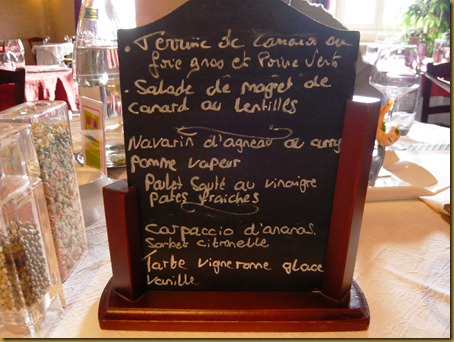 • Terrine de canard au
foie gras et Poivre Vert
• Salade de magret de
canard au lentilles
Navarin d'agneau au curry
pomme vapeur
Poulet Sauté au vinaigre
Pates fraiches
Carpaccio d'ananas
Sorbet citronelle
Tarte vigneronne glace
vanille